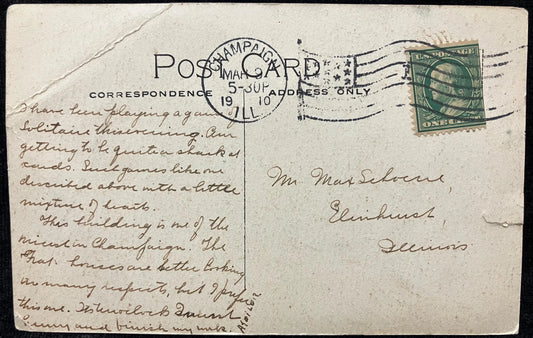 POST CARD
CORRESPONDENCE ADDRESS ONLY
CHAMPAIGN
MAR 9
5-30P
1910
ILL.
U.S. POSTAGE
ONE
I have been playing a game
Solitaire this evening. Am
getting to be quite a shark at
cards. Such games like one
described above with a little
mixture of hearts.
This building is one of the
nicest in Champaign. The
Frat. houses are better looking
in many respects, but I prefer
this one. It's
and finish my work.
Mr. Max
Elmhurst,
Illinois